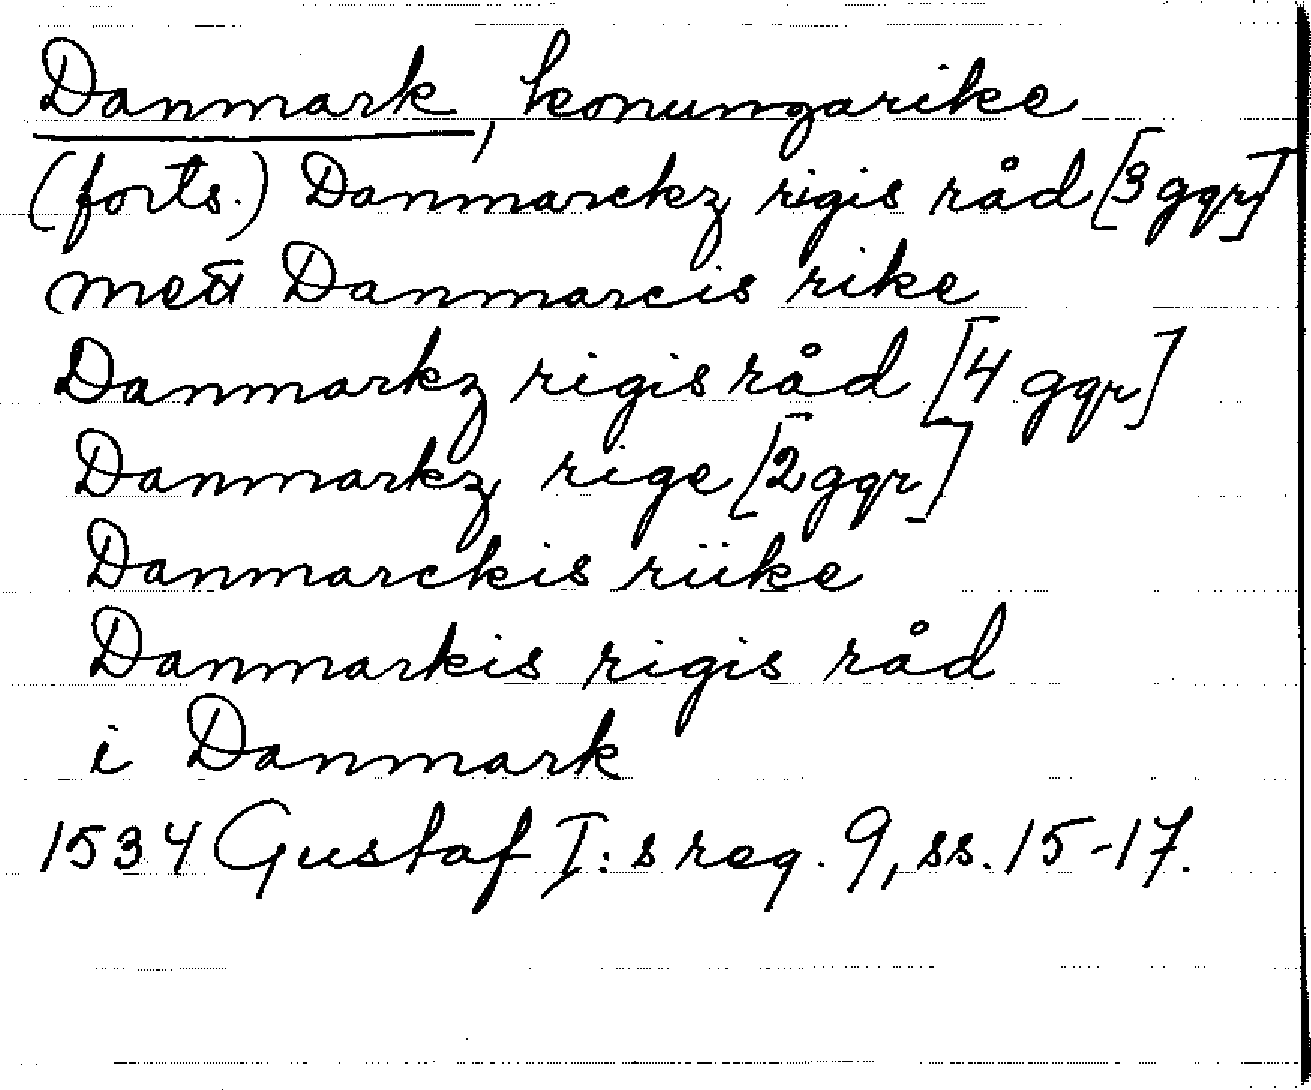 Danmark, konungarike
(forts.) Danmarckz rigis råd [3 ggr]
mett Danmarcis rike
Danmarkz rigis råd [4 ggr]
Danmarkz rige [2 ggr]
Danmarckis riike
Danmarkis rigis råd
i Danmark
1534 Gustaf I:s reg. 9, ss. 15-17.